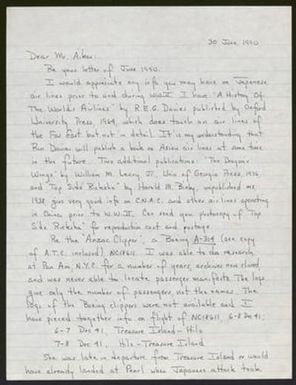 30 June 1990
Dear Mr. Aiken:
Re your letter of June 1990.
I would appreciate any info you may have on Japanese
air lines prior to and during WWII. I have "A History Of
The World's Airlines" by R.E.G. Davies published by Oxford
University Press, 1964, which does touch on air lines of
the Far East but not in detail. It is my understanding that
Ron Davies will publish a book on Asian air lines at some time
in the future. Two additional publications "The Dragon's
Wings" by William M. Leary Jr., Univ of Georgia Press, 1976
and "Top Side Ricksha" by Harold M. Bixby, unpublished ms,
1938, give very good info on C.N.A.C. and other air lines operating
in China prior to W.W.II. Can send you photocopy of "Top
Side Ricksha" for reproduction cost and postage.
Re the "Anzac Clipper", a Boeing A-314 (see copy
of A.T.C. inclosed) NC18611. I was able to do research
at Pan Am, N.Y.C. for a number of years, archives now closed
and was never able to locate passenger manifests. The logs
give only the number of passengers, not the names. The
logs of the Boeing clippers were not available and I
have pieced together info on flight of NC18611, 6-8 Dec 41,
6-7 Dec 41, Treasure Island - Hilo
7-8 Dec 41, Hilo - Treasure Island
She was late in departure from Treasure Island or would
have already landed at Pearl when Japanese attack took